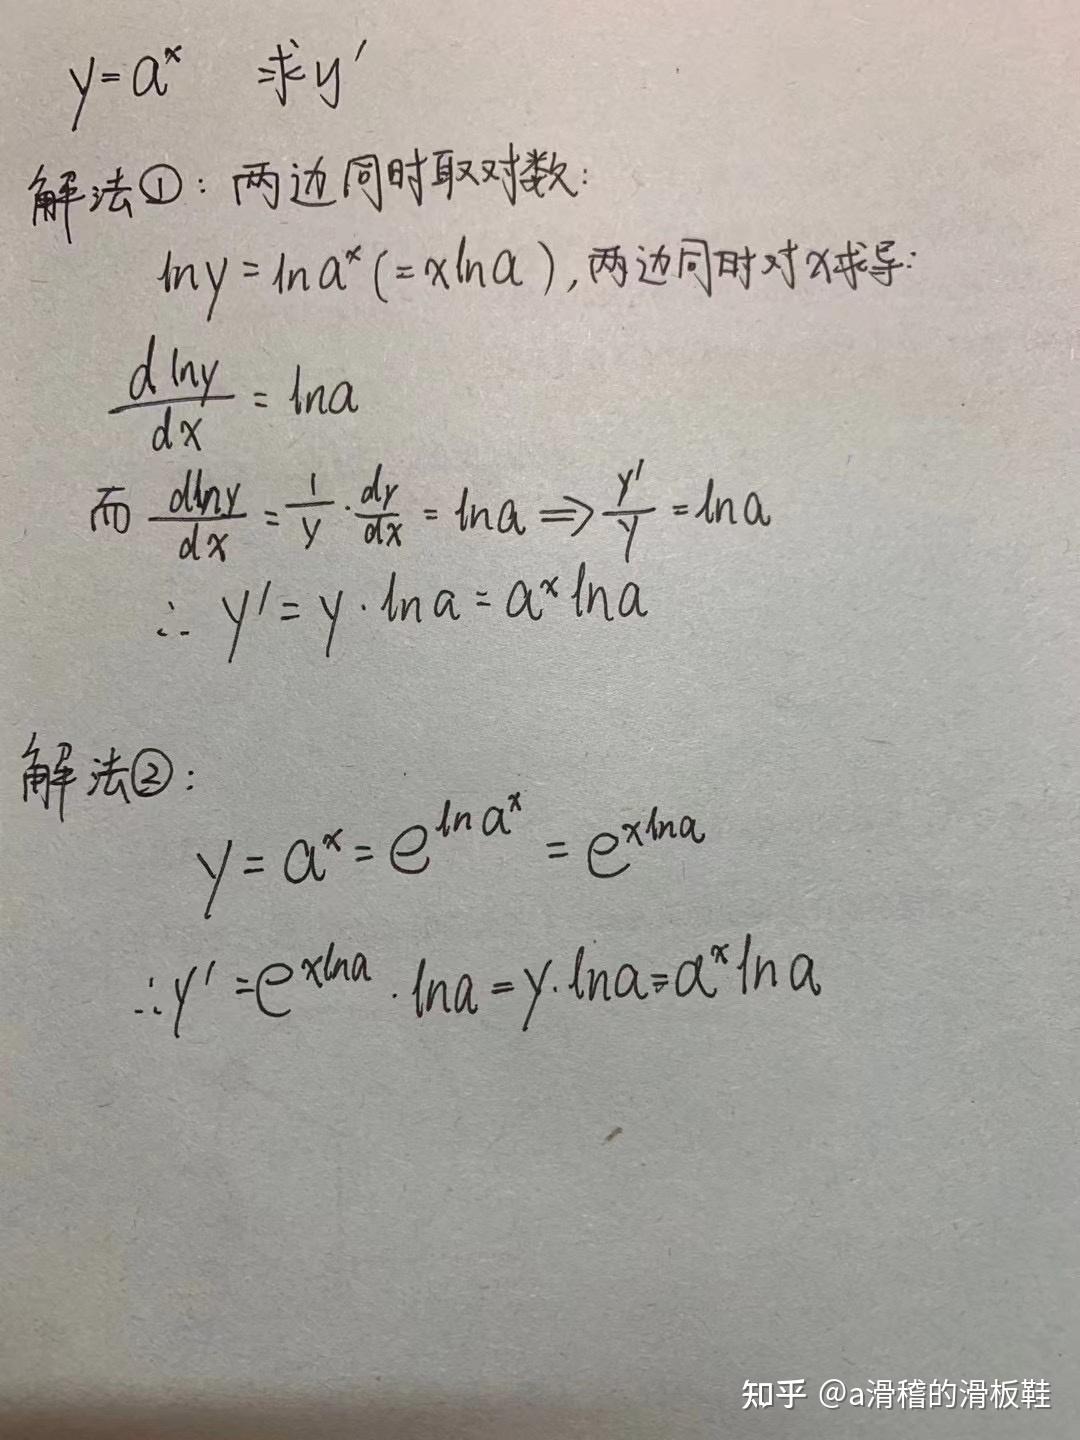 y=aˣ 求y′
解法①：两边同时取对数：
lny=lnaˣ(=xlna),两边同时对x求导：
dlny/dx=lna
而 dlny/dx=1/y·dy/dx=lna⇒y′/y=lna
∴ y′=y·lna=aˣlna
解法②：
y=aˣ=e^(lnaˣ)=e^(xlna)
∴y′=e^(xlna)·lna=y·lna=aˣlna
知乎 @a滑稽的滑板鞋